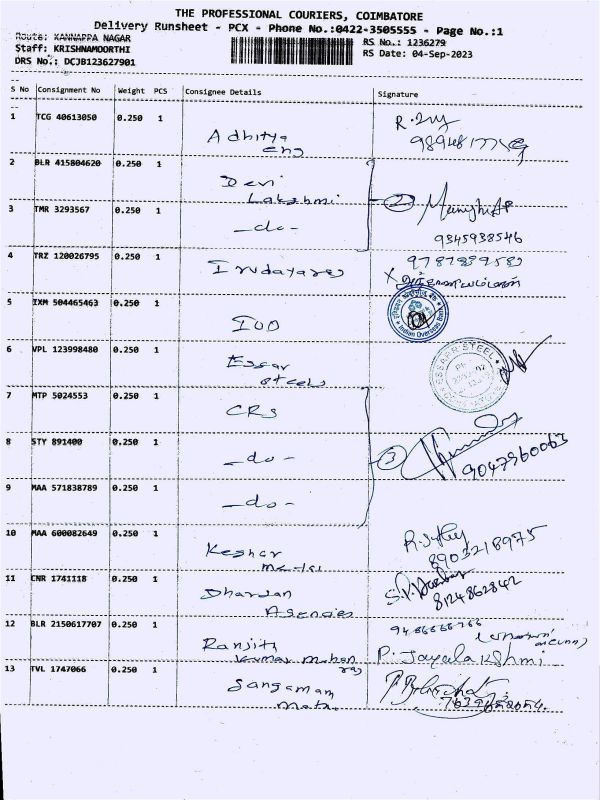 THE PROFESSIONAL COURIERS, COIMBATORE
Delivery Runsheet - PCX - Phone No.:0422-3505555 - Page No.:1
Route: KANNAPPA NAGAR
RS No.: 1236279
Staff: KRISHNAMOORTHI
RS Date: 04-Sep-2023
DRS No.: DCJB123627901
S No Consignment No Weight PCS Consignee Details Signature
1 TCG 40613050 0.250 1
Adhitya
Eng
2 BLR 415804620 0.250 1
Devi
Lakshmi
2
3 TMR 3293567 0.250 1
-do-
9345938546
4 TRZ 120026795 0.250 1
Irudayaraj
5 IXM 504465463 0.250 1
IOB
Indian Overseas Bank
6 VPL 123998480 0.250 1
Essar
Steels
ESSARR STEEL
7 MTP 5024553 0.250 1
CRS
8 STY 891400 0.250 1
-do-
3
9047960063
9 MAA 571838789 0.250 1
-do-
10 MAA 600082649 0.250 1
Keshar
Metal
8903218975
11 CNR 1741118 0.250 1
Dharsan
Agencies
8124862842
12 BLR 2150617707 0.250 1
Ranjith
Kumar Mohan
raj
P. Jayalakshmi
13 TVL 1747066 0.250 1
Sangamam